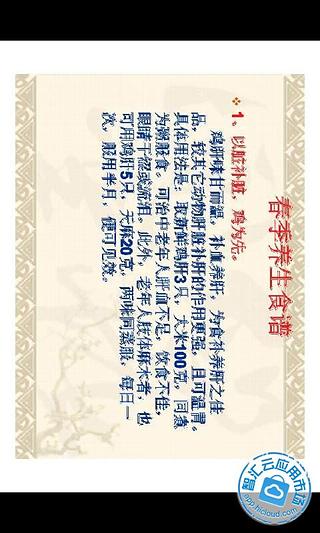 春季养生食谱
❖ 1、以脏补脏，鸡为先。
鸡肝味甘而温，补血养肝，为食补养肝之佳
品，较其它动物肝脏补肝的作用更强，且可温胃。
具体用法是：取新鲜鸡肝3只，大米100克，同煮
为粥服食。可治中老年人肝血不足，饮食不佳，
眼睛干涩或流泪。此外，老年人肢体麻木者，也
可用鸡肝5只，天麻20克，两味同蒸服，每日一
次，服用半月，便可见效。
智汇云应用市场
app.hicloud.com